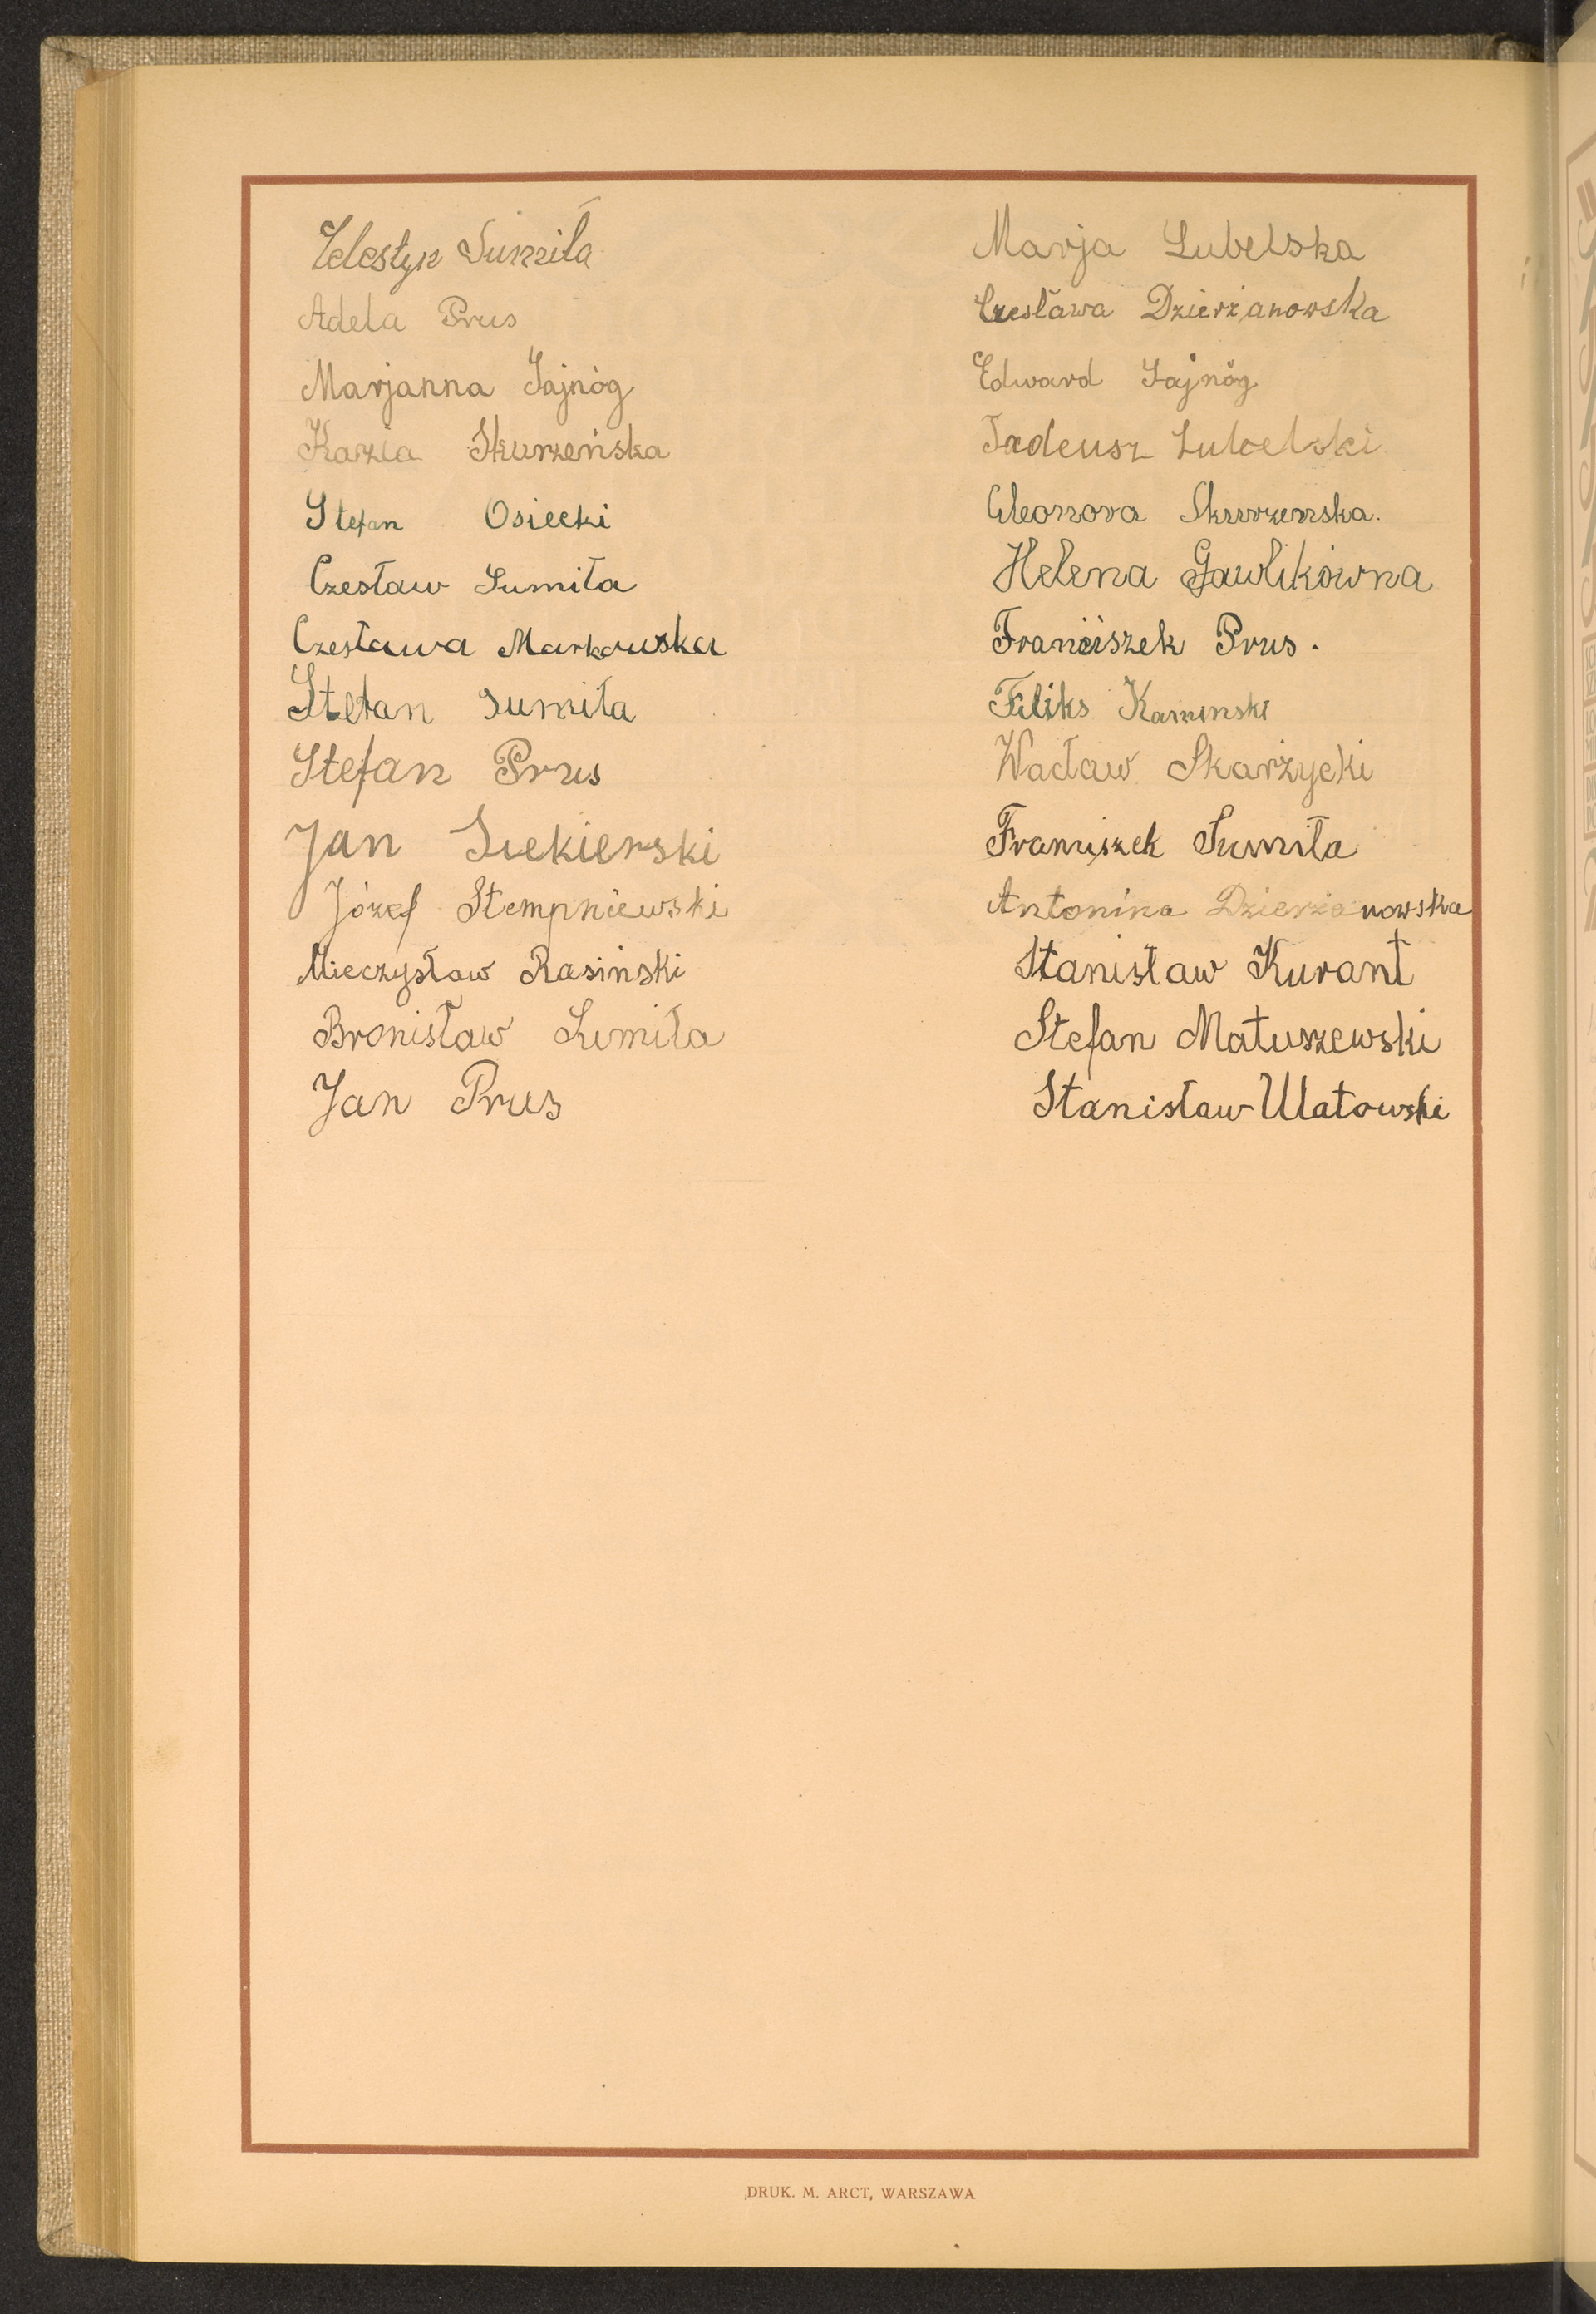 Celestyn Sumiła
Adela Prus
Marjanna Sajnóg
Kazia Skurzeńska
Stefan Osiecki
Czesław Sumiła
Czesława Markowska
Stefan Sumiła
Stefan Prus
Jan Siekierski
Józef Stempniewski
Mieczysław Rasiński
Bronisław Sumiła
Jan Prus
Marja Lubelska
Czesława Dzierżanowska
Edward Sajnóg
Tadeusz Lubelski
Eleonora Skurzenska.
Helena Gawlikówna
Franciszek Prus.
Filiks Kaminski
Wacław Skarżycki
Franciszek Sumiła
Antonina Dzierżanowska
Stanisław Kurant
Stefan Matuszewski
Stanisław Ulatowski
DRUK. M. ARCT, WARSZAWA